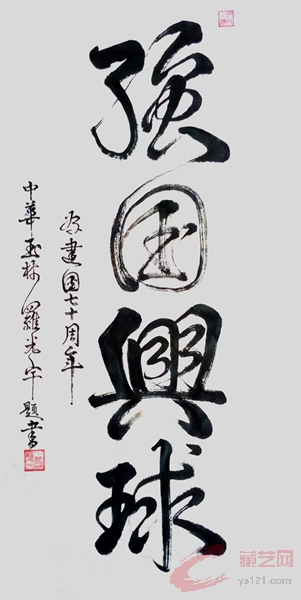 强国興球
为建国七十周年
中華玉林羅光宇題書
藏艺网
ys121.com